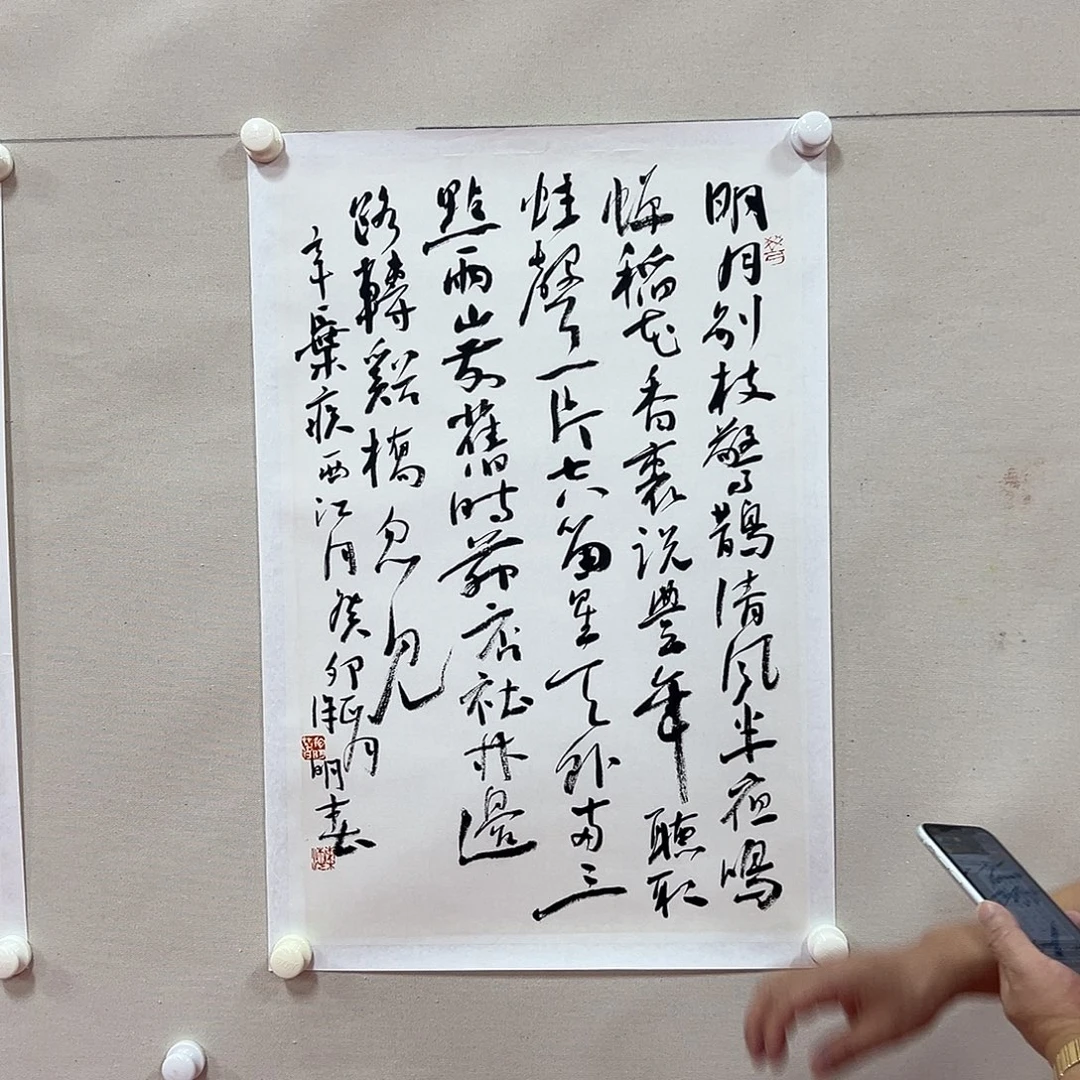 明月别枝驚鵲清風半夜鳴
蟬稻花香裏説豐年聽取
蛙聲一片七八箇星天外兩三
點雨山前舊時茅店社林邊
路轉谿橋忽見
辛棄疾西江月癸卯正月
明春